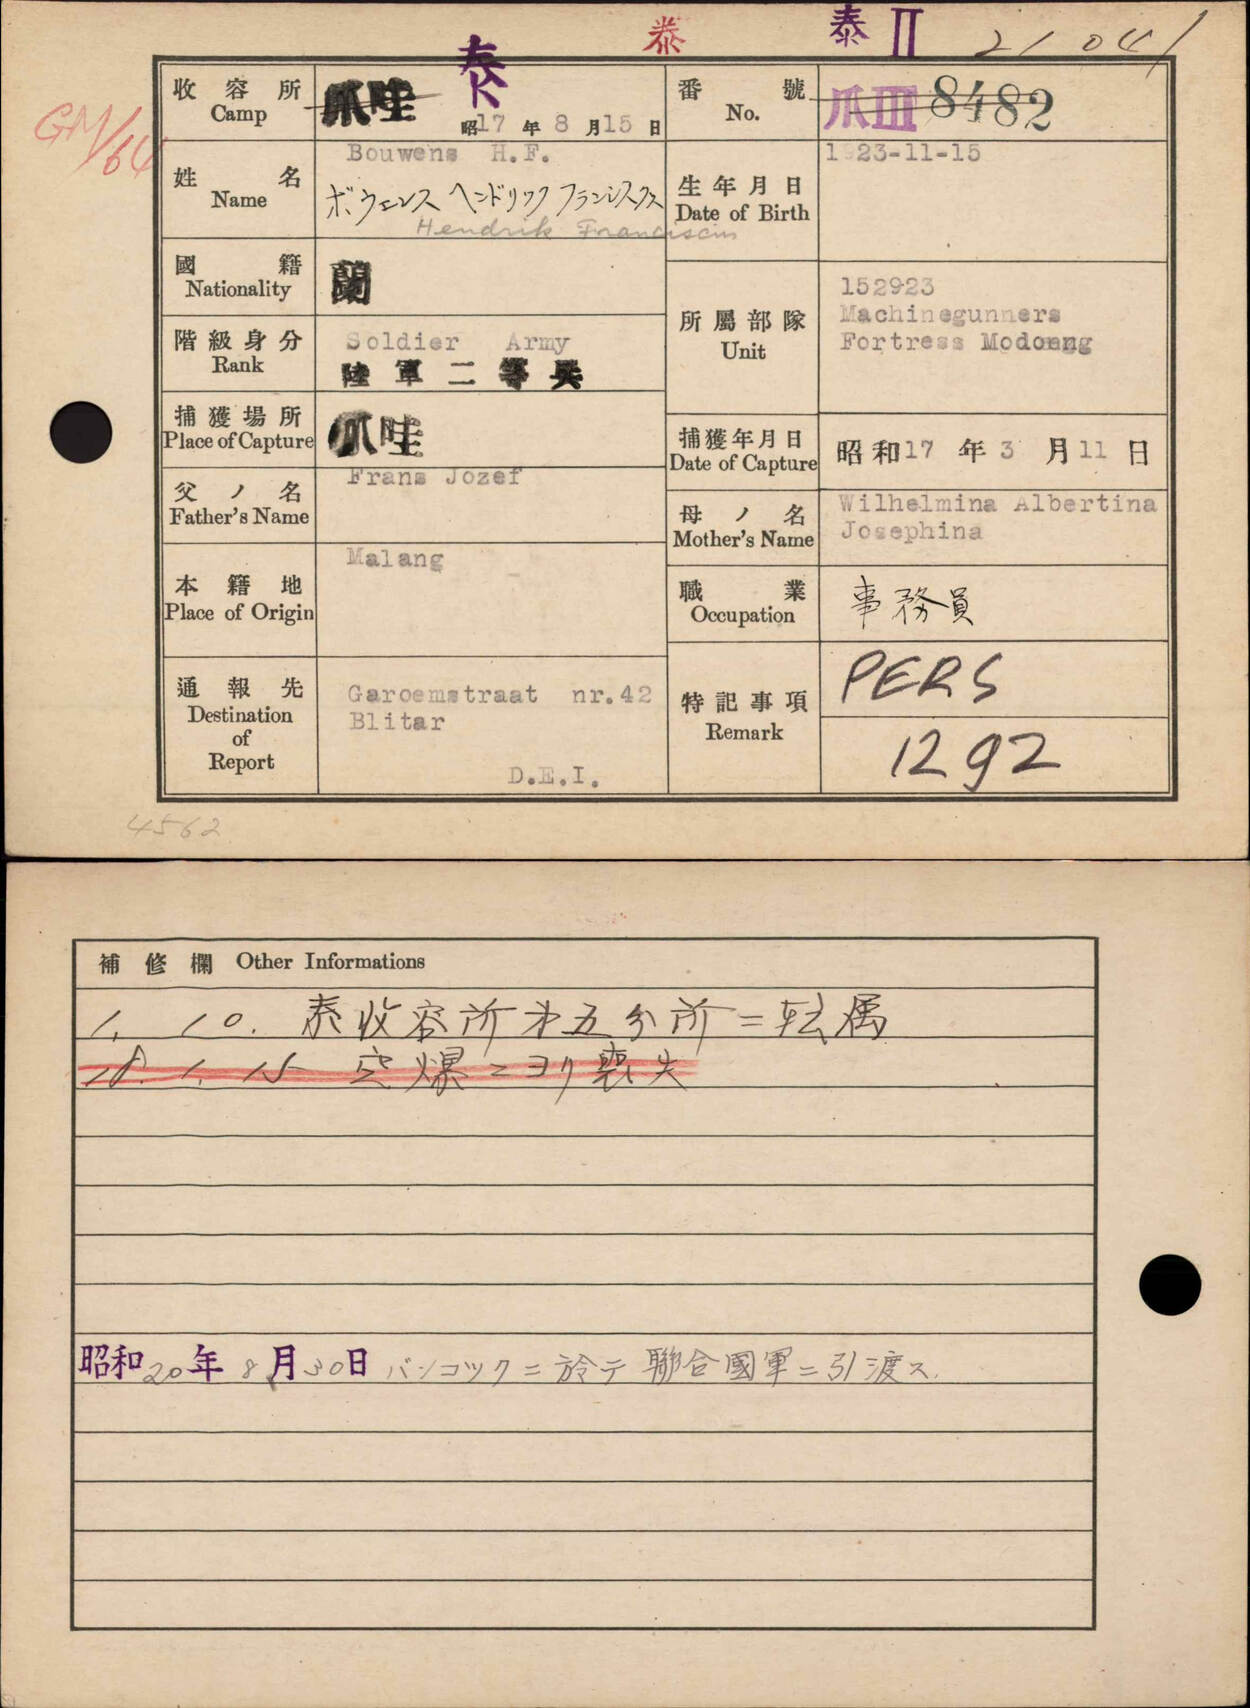 泰
泰 II
21041
GM/64
收容所
Camp
爪哇
泰
昭17年8月15日
番號
No.
爪III 8482
姓名
Name
Bouwens H.F.
ボウエンス ヘンドリック フランシスクス
Hendrik Franciscus
生年月日
Date of Birth
1923-11-15
國籍
Nationality
蘭
階級身分
Rank
Soldier Army
陸軍二等兵
所屬部隊
Unit
152923
Machinegunners
Fortress Modoeng
捕獲場所
Place of Capture
爪哇
捕獲年月日
Date of Capture
昭和17年3月11日
父ノ名
Father's Name
Frans Jozef
母ノ名
Mother's Name
Wilhelmina Albertina
Josephina
本籍地
Place of Origin
Malang
職業
Occupation
事務員
通報先
Destination
of
Report
Garoemstraat nr.42
Blitar
D.E.I.
特記事項
Remark
PERS
1292
4562
補修欄 Other Informations
1. 10. 泰收容所オ五分所ニ転属
18. 1. 15 空爆ニヨリ喪失
昭和20年8月30日 バンコックニ於テ聯合國軍ニ引渡ス.